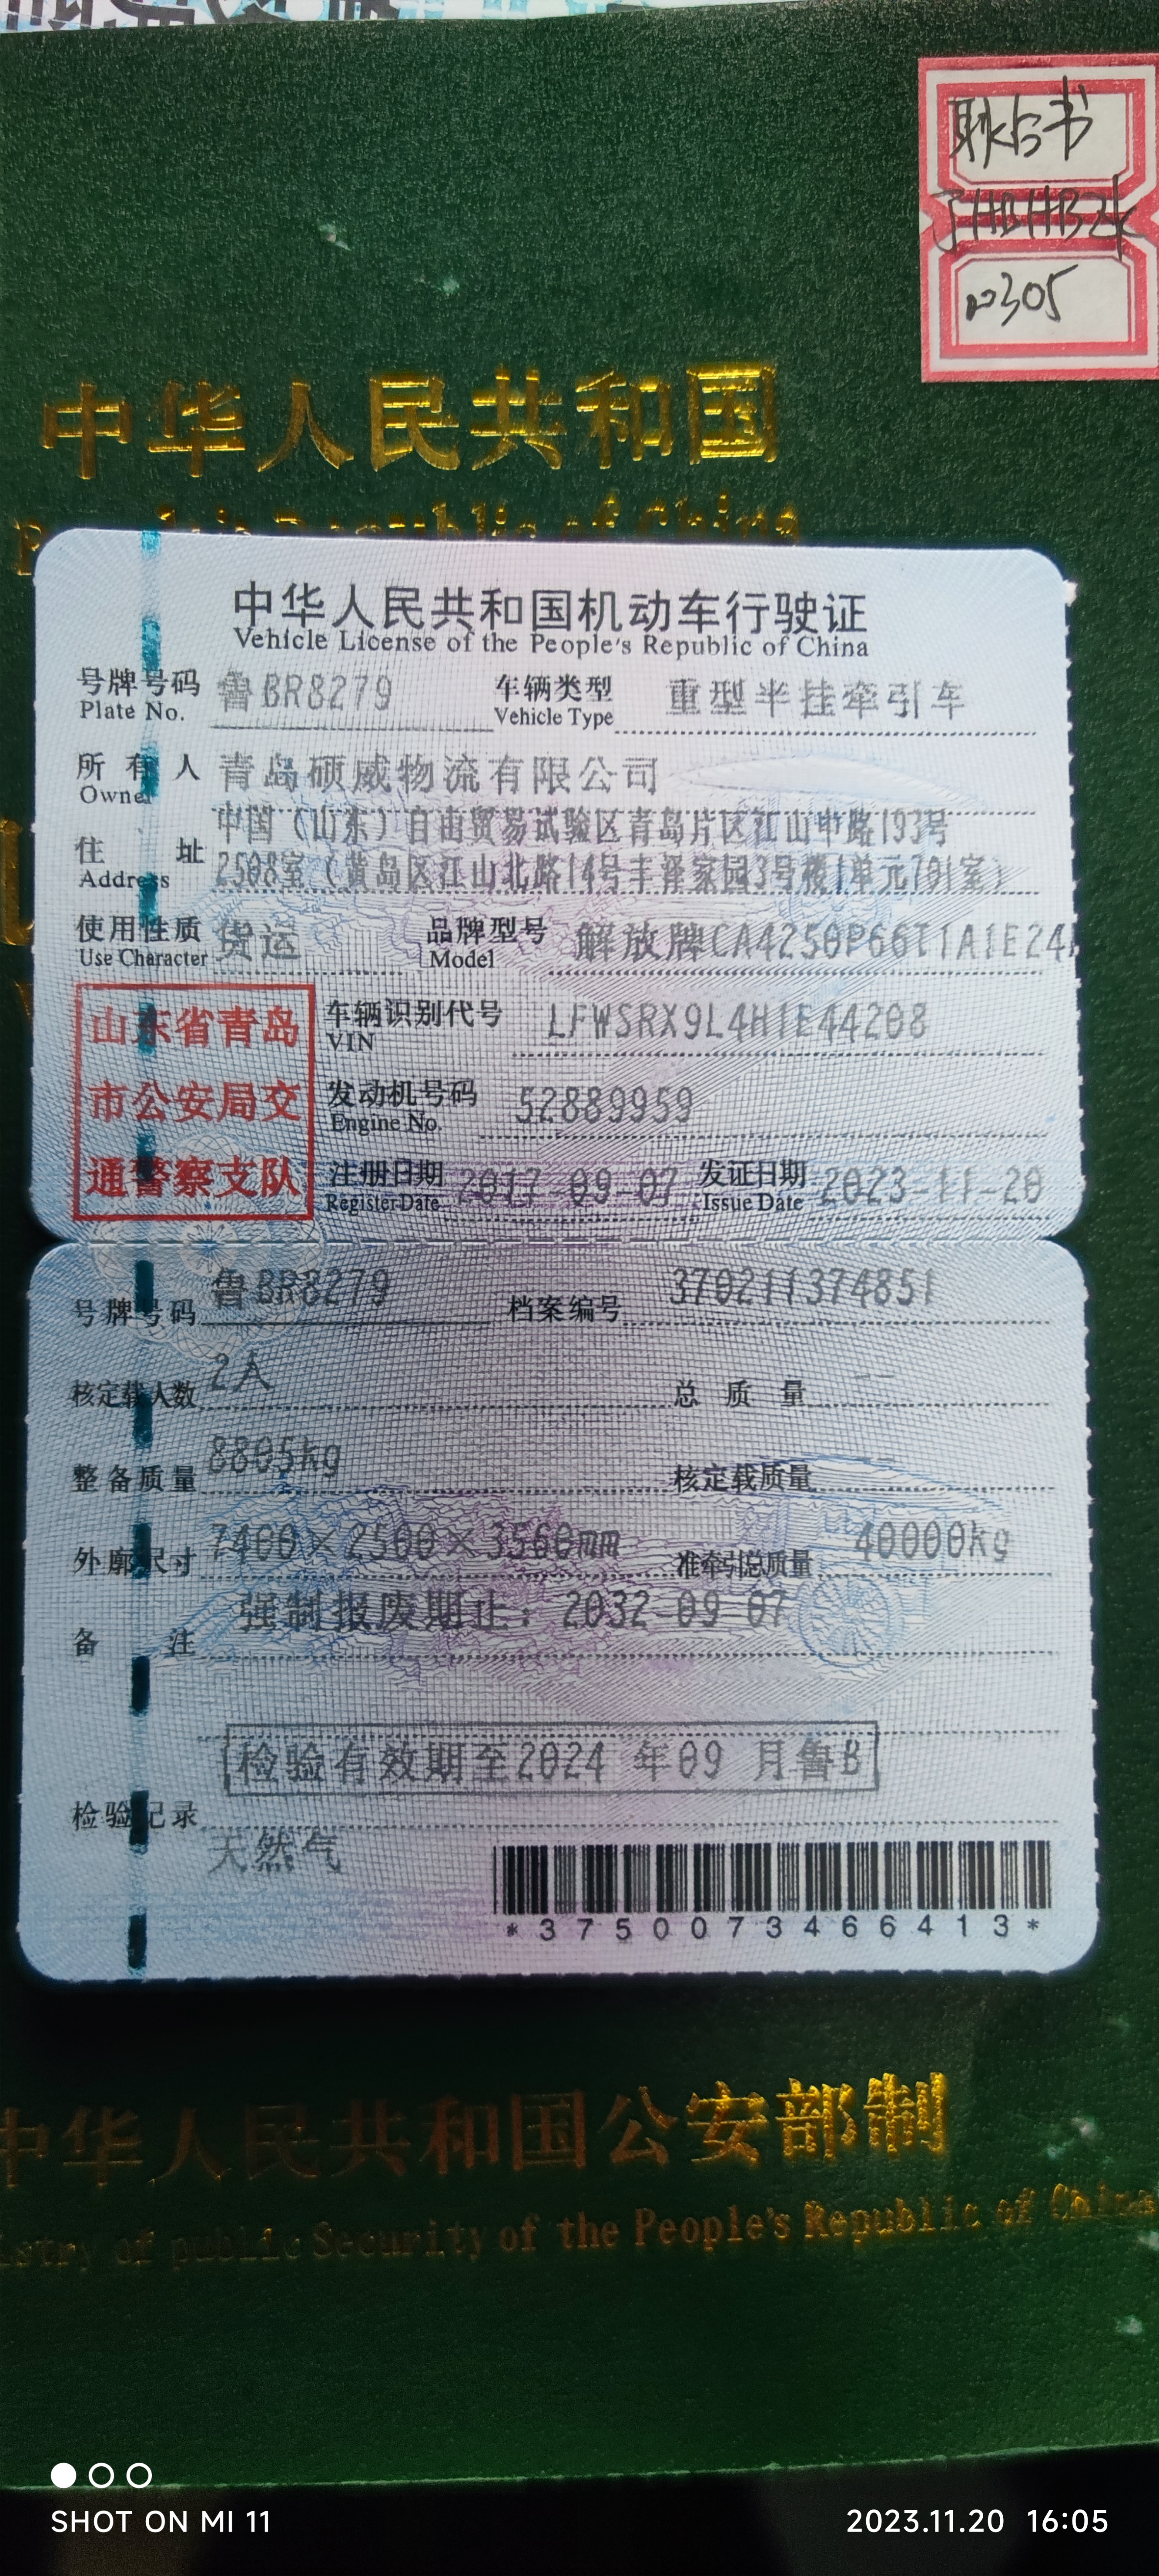 耿台书
10305
中华人民共和国
中华人民共和国机动车行驶证
Vehicle License of the People's Republic of China
号牌号码 鲁BR8279 车辆类型 重型半挂牵引车
Plate No. Vehicle Type
所有人 青岛硕威物流有限公司
Owner
中国（山东）自由贸易试验区青岛片区江山中路193号
住址 2508室（黄岛区江山北路14号丰泽家园3号楼1单元701室）
Address
使用性质 货运 品牌型号 解放牌CA4250P66T1A1E24
Use Character Model
山东省青岛
市公安局交
通警察支队
车辆识别代号 LFWSRX9L4H1E44208
VIN
发动机号码 52889959
Engine No.
注册日期 2017-09-07 发证日期 2023-11-20
Register Date Issue Date
号牌号码 鲁BR8279 档案编号 370211374851
核定载人数 2人 总质量 --
整备质量 8805kg 核定载质量 --
外廓尺寸 7400×2500×3560mm 准牵引总质量 40000kg
备注 强制报废期止：2032-09-07
检验有效期至2024 年09 月鲁B
检验记录
天然气
*3750073466413*
中华人民共和国公安部制
istry of public Security of the People's Republic of China
SHOT ON MI 11
2023.11.20 16:05